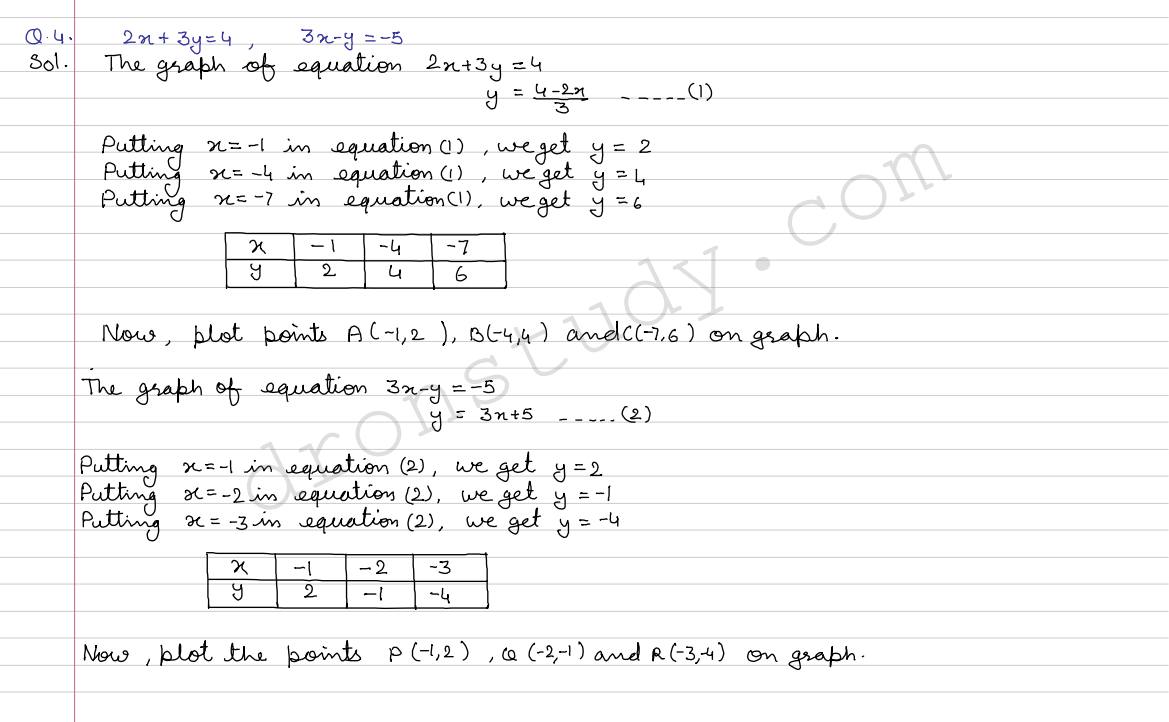 Q.4. 2x+3y=4 , 3x-y=-5
Sol. The graph of equation 2x+3y=4
y = (4-2x)/3 -----(1)
Putting x=-1 in equation (1), we get y = 2
Putting x=-4 in equation (1), we get y = 4
Putting x=-7 in equation (1), we get y = 6
x -1 -4 -7
y 2 4 6
Now, plot points A(-1,2), B(-4,4) and C(-7,6) on graph.
The graph of equation 3x-y=-5
y = 3x+5 -----(2)
Putting x=-1 in equation (2), we get y=2
Putting x=-2 in equation (2), we get y=-1
Putting x=-3 in equation (2), we get y=-4
x -1 -2 -3
y 2 -1 -4
Now, plot the points P(-1,2), Q(-2,-1) and R(-3,-4) on graph.
dronstudy.com